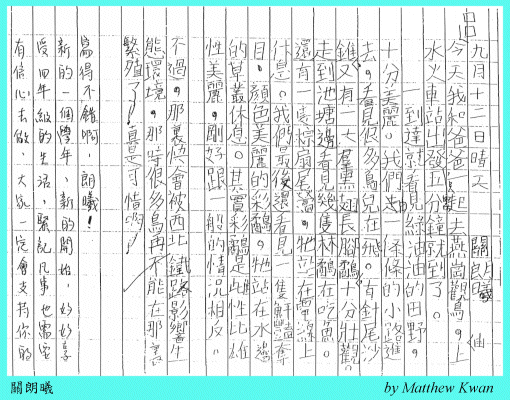 九月十二日晴天 關朗曦
今天我和爸爸一起去燕崗觀鳥。上
水火車站出發五分鐘就到了。
一到達就看見綠油油的田野。
十分美麗。我們條條的小路進
去。看見很多鳥兒在飛。有針尾沙
錐又有一大羣黑翅長腳鷸十分壯觀。
走到池塘邊看見幾隻林鷸在吃魚。
還有一隻棕扇尾鶯。牠站在電線上
休息。我們最後還看見一隻鮮豔奪
目。顏色美麗的彩鷸。牠站在水邊
的草叢休息。其實彩鷸是雌性比雄
性美麗。剛好跟一般的情況相反。
不過。那裏將會被西北鐵路影響生
態環境。那時很多鳥再不能在那裏
繁殖了。真是可惜啊!
寫得不錯啊,朗曦!
新的一個學年,新的開始,好好享
受四年級的生活,緊記凡事也需要
有信心去做,大家一定會支持你的
關朗曦
by Matthew Kwan